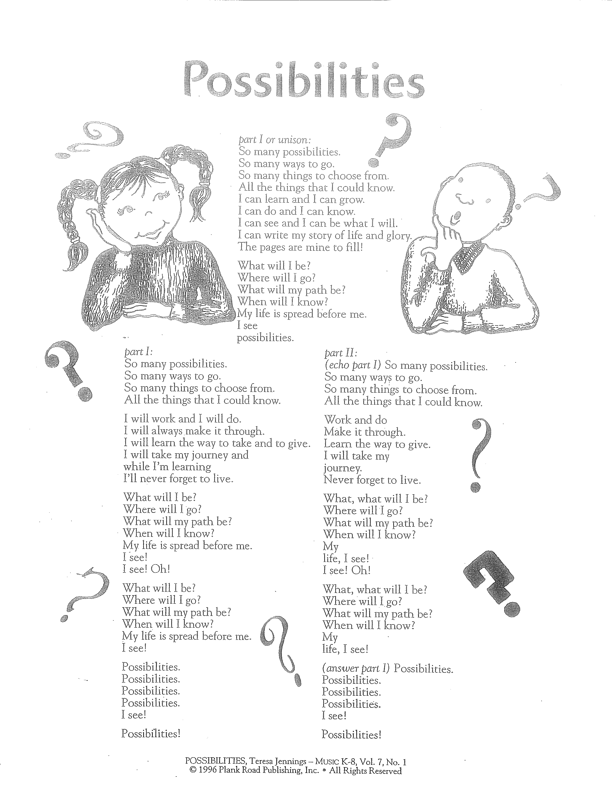 Possibilities
part I or unison:
So many possibilities.
So many ways to go.
So many things to choose from.
All the things that I could know.
I can learn and I can grow.
I can do and I can know.
I can see and I can be what I will.
I can write my story of life and glory.
The pages are mine to fill!
What will I be?
Where will I go?
What will my path be?
When will I know?
My life is spread before me.
I see
possibilities.
part I:
So many possibilities.
So many ways to go.
So many things to choose from.
All the things that I could know.
I will work and I will do.
I will always make it through.
I will learn the way to take and to give.
I will take my journey and
while I'm learning
I'll never forget to live.
What will I be?
Where will I go?
What will my path be?
When will I know?
My life is spread before me.
I see!
I see! Oh!
What will I be?
Where will I go?
What will my path be?
When will I know?
My life is spread before me.
I see!
Possibilities.
Possibilities.
Possibilities.
Possibilities.
I see!
Possibilities!
part II:
(echo part I) So many possibilities.
So many ways to go.
So many things to choose from.
All the things that I could know.
Work and do
Make it through.
Learn the way to give.
I will take my
journey.
Never forget to live.
What, what will I be?
Where will I go?
What will my path be?
When will I know?
My
life, I see!
I see! Oh!
What, what will I be?
Where will I go?
What will my path be?
When will I know?
My
life, I see!
(answer part I) Possibilities.
Possibilities.
Possibilities.
Possibilities.
I see!
Possibilities!
POSSIBILITIES, Teresa Jennings – MUSIC K-8, Vol. 7, No. 1
© 1996 Plank Road Publishing, Inc. • All Rights Reserved